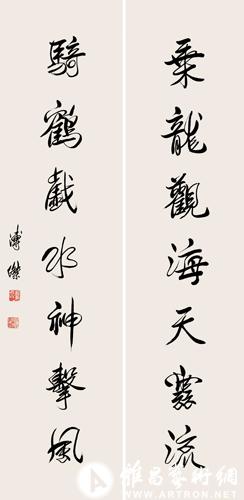 乘龍觀海天霧流
騎鶴戲水神擊風
溥傑
雅昌藝術網
WWW.ARTRON.NET